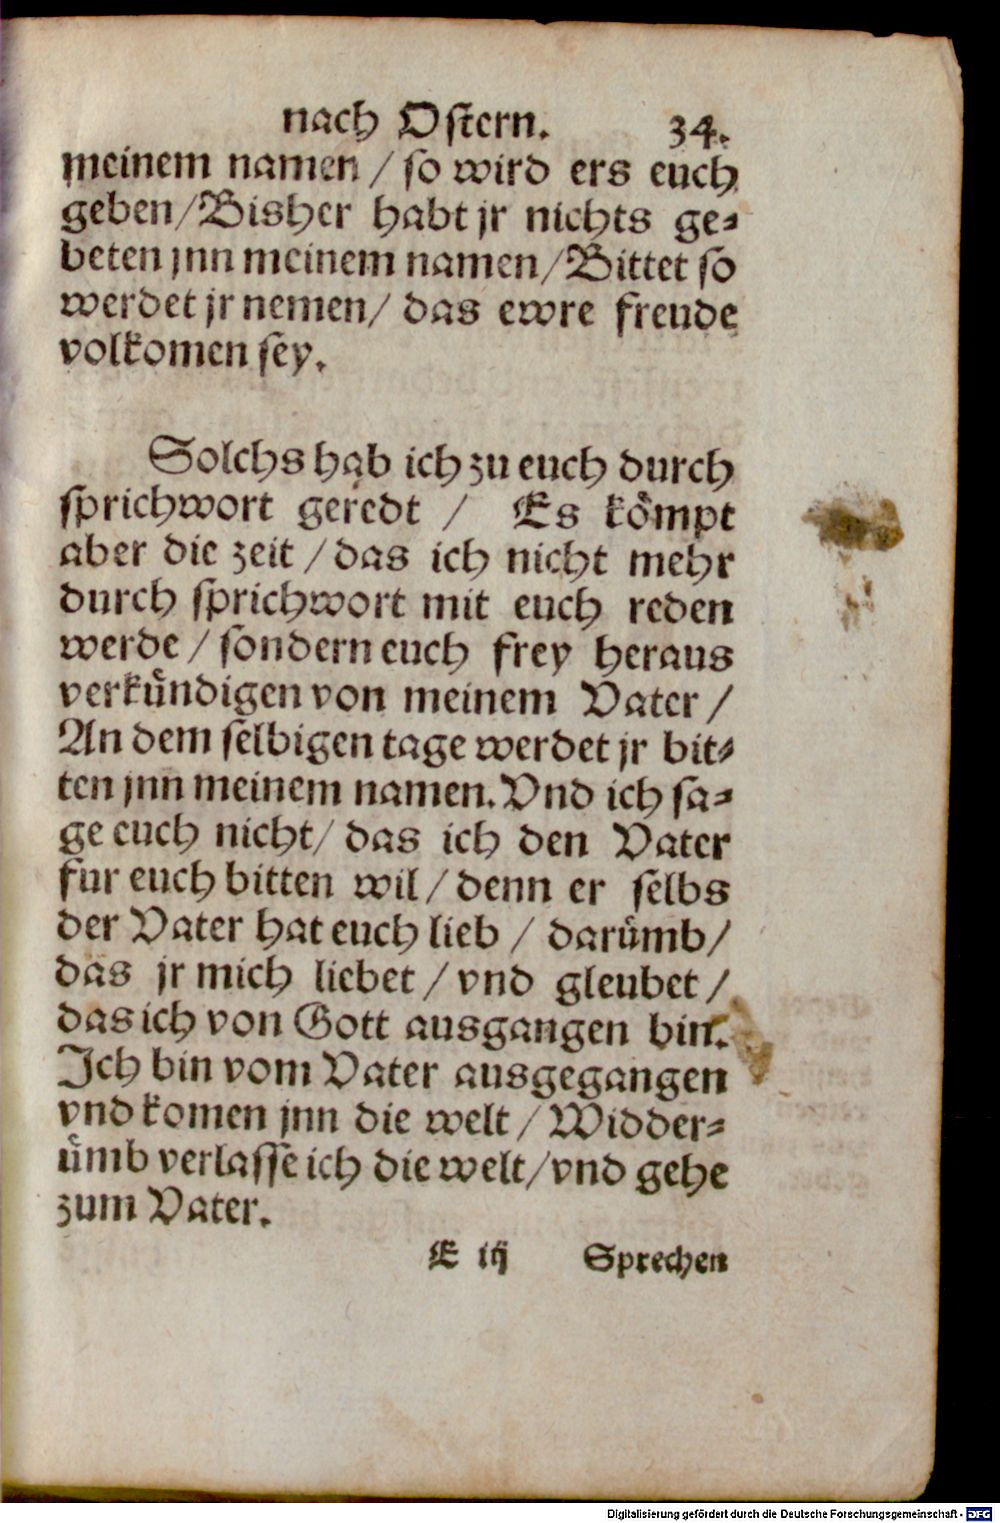 nach Ostern. 34.
meinem namen / so wird ers euch
geben/Bisher habt jr nichts ge-
beten jnn meinem namen/Bittet so
werdet jr nemen/ das ewre freude
volkomen sey.
Solchs hab ich zu euch durch
sprichwort geredt / Es koͤmpt
aber die zeit / das ich nicht mehr
durch sprichwort mit euch reden
werde / sondern euch frey heraus
verkuͤndigen von meinem Vater /
An dem selbigen tage werdet jr bit-
ten jnn meinem namen. Vnd ich sa-
ge euch nicht/ das ich den Vater
fur euch bitten wil / denn er selbs
der Vater hat euch lieb / daruͤmb/
das jr mich liebet / vnd gleubet /
das ich von Gott ausgangen bin.
Ich bin vom Vater ausgegangen
vnd komen jnn die welt / Widder-
uͤmb verlasse ich die welt/vnd gehe
zum Vater.
E iij Sprechen
Digitalisierung gefördert durch die Deutsche Forschungsgemeinschaft - DFG